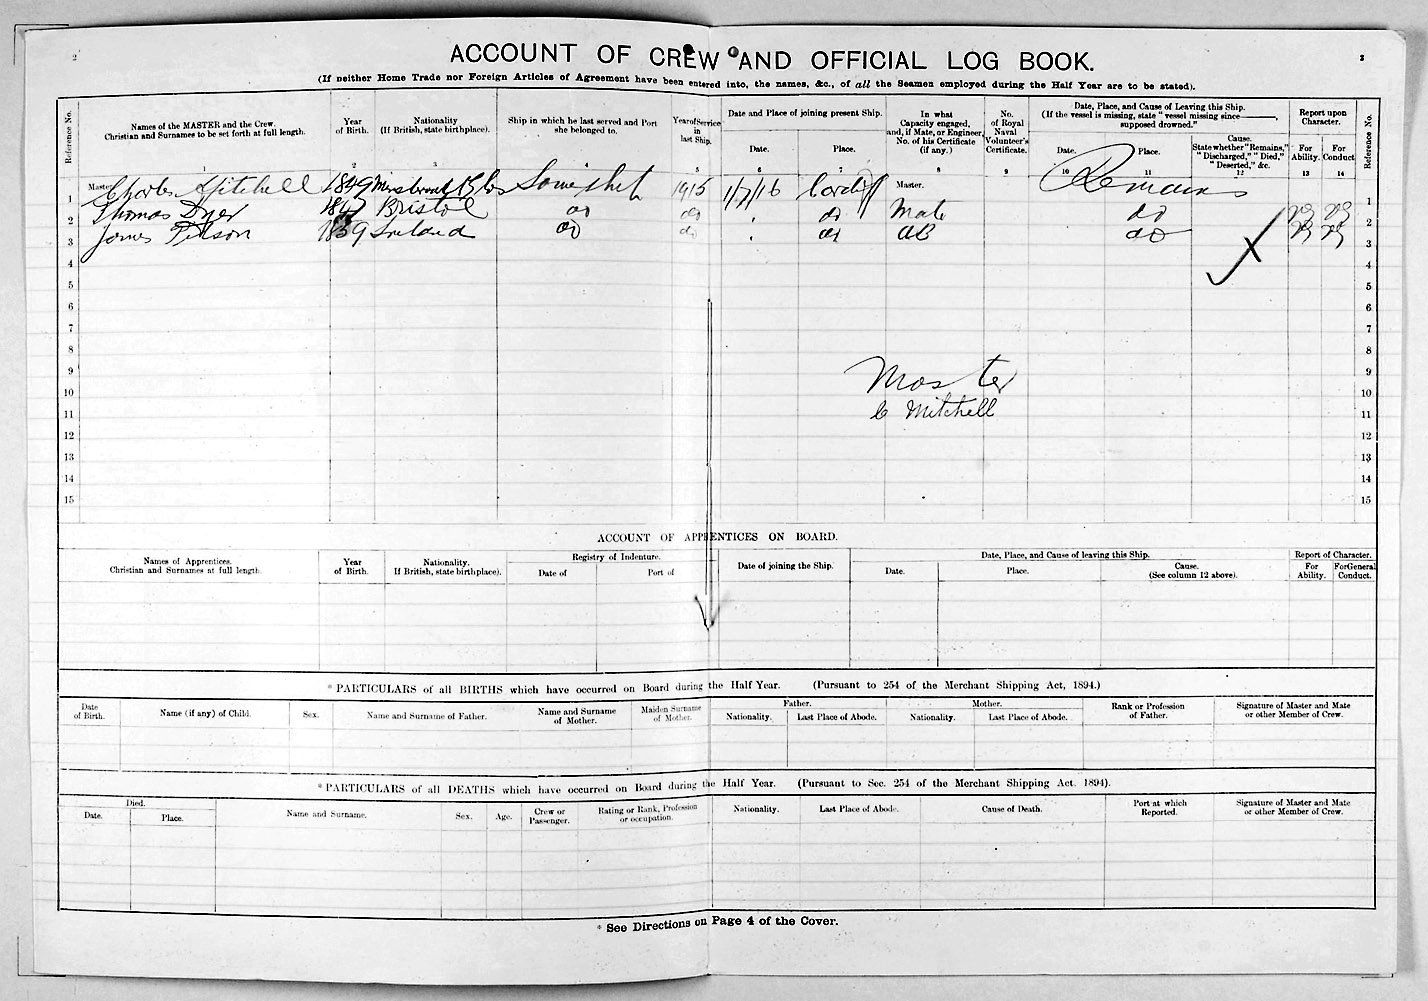 2
ACCOUNT OF CREW AND OFFICIAL LOG BOOK.
3
(If neither Home Trade nor Foreign Articles of Agreement have been entered into, the names, &c., of all the Seamen employed during the Half Year are to be stated).
Reference No. Names of the MASTER and the Crew. Christian and Surnames to be set forth at full length. Year of Birth. Nationality (If British, state birthplace). Ship in which he last served and Port she belonged to. Year of Service in last Ship. Date and Place of joining present Ship. Date. Place. In what Capacity engaged, and, if Mate, or Engineer, No. of his Certificate (if any.) No. of Royal Naval Volunteer's Certificate. Date, Place, and Cause of Leaving this Ship. (If the vessel is missing, state "vessel missing since ——, supposed drowned." Date. Place. Cause. State whether "Remains," "Discharged," "Died," "Deserted," &c. Report upon Character. For Ability. For Conduct Reference No.
1 2 3 5 6 7 8 9 10 11 12 13 14
1 Master Charles Mitchell 1849 Somerset 1915 1/7/16 Cardiff Master. Remains 1
2 Thomas Dyer Bristol do do do Mate do VG VG 2
3 James 1859 Ireland do do do AB do VG VG 3
4 4
5 5
6 6
7 7
8 8
9 Master 9
10 10
11 C Mitchell 11
12 12
13 13
14 14
15 15
ACCOUNT OF APPRENTICES ON BOARD.
Names of Apprentices. Christian and Surnames at full length. Year of Birth. Nationality. If British, state birthplace). Registry of Indenture. Date of Port of Date of joining the Ship. Date, Place, and Cause of leaving this Ship. Date. Place. Cause. (See column 12 above). Report of Character. For Ability. For General Conduct.
* PARTICULARS of all BIRTHS which have occurred on Board during the Half Year. (Pursuant to 254 of the Merchant Shipping Act, 1894.)
Date of Birth. Name (if any) of Child. Sex. Name and Surname of Father. Name and Surname of Mother. Maiden Surname of Mother. Father. Nationality. Last Place of Abode. Mother. Nationality. Last Place of Abode. Rank or Profession of Father. Signature of Master and Mate or other Member of Crew.
* PARTICULARS of all DEATHS which have occurred on Board during the Half Year. (Pursuant to Sec. 254 of the Merchant Shipping Act. 1894).
Died. Date. Place. Name and Surname. Sex. Age. Crew or Passenger. Rating or Rank, Profession or occupation. Nationality. Last Place of Abode. Cause of Death. Port at which Reported. Signature of Master and Mate or other Member of Crew.
* See Directions on Page 4 of the Cover.